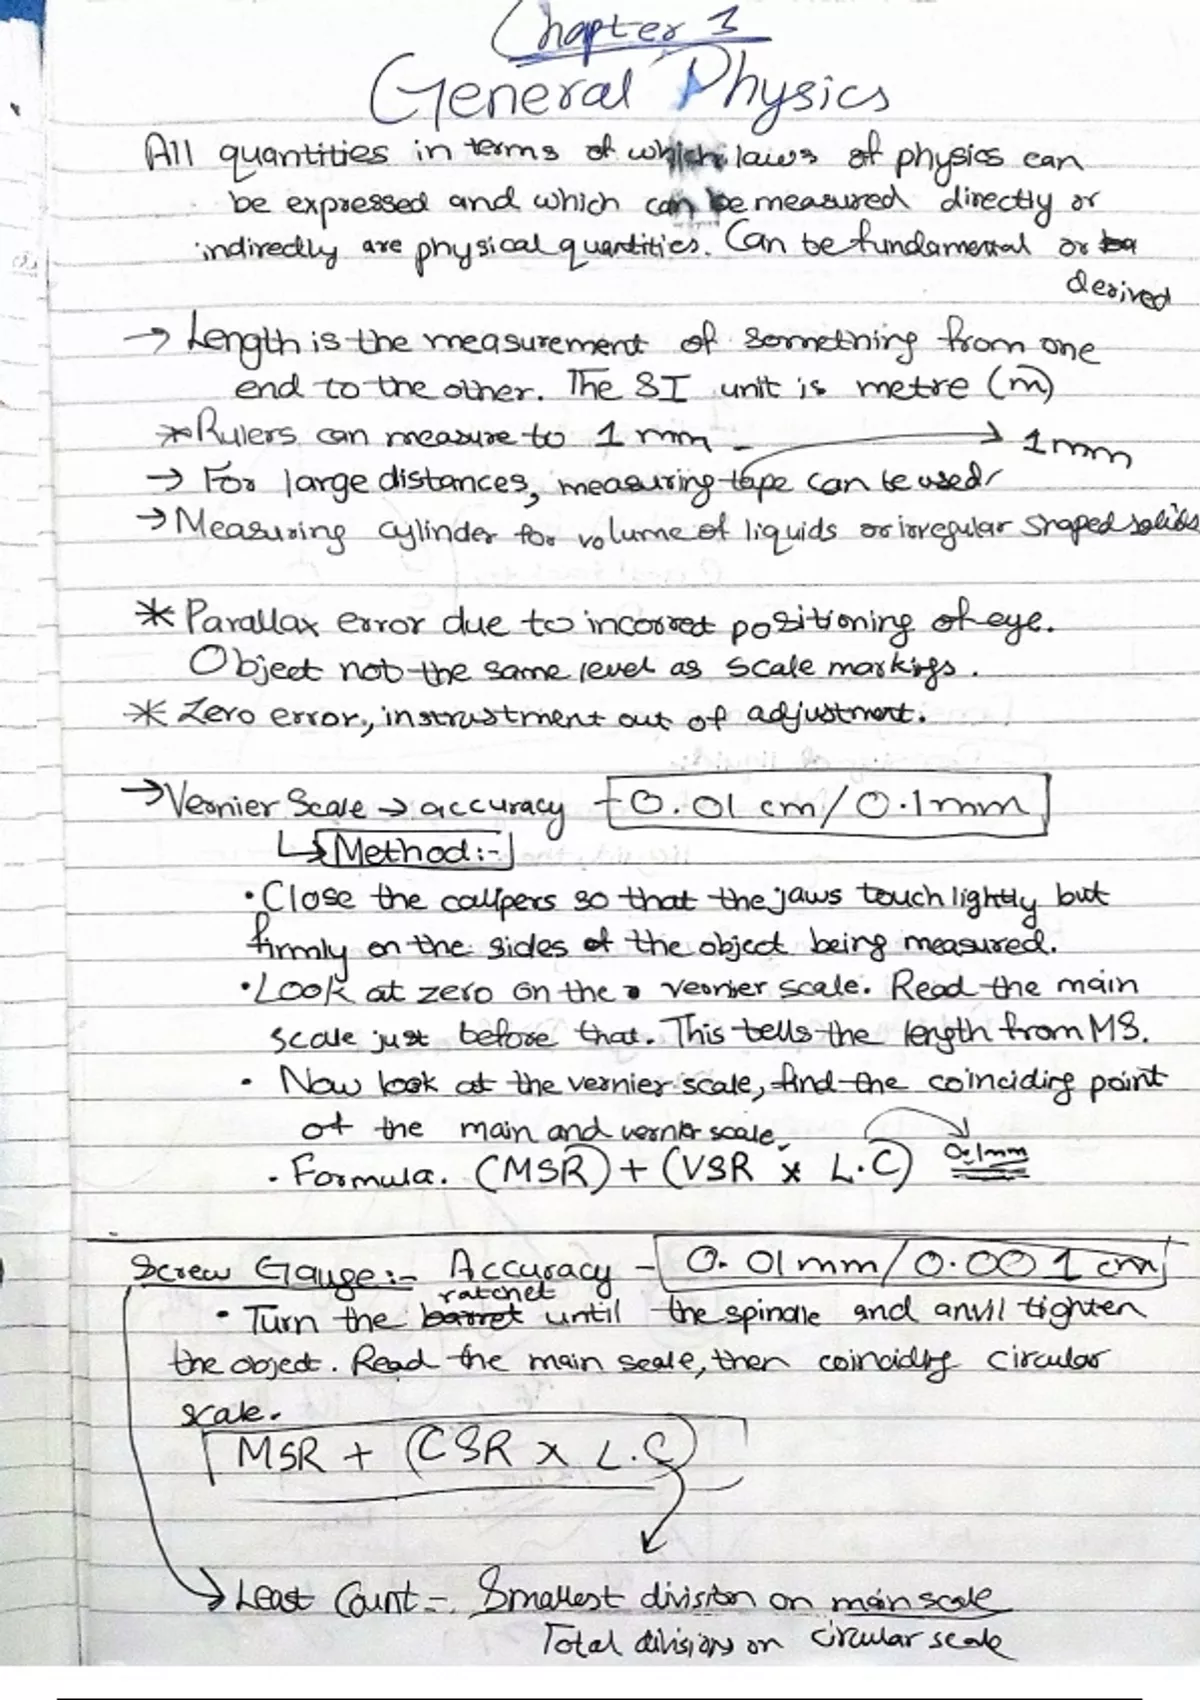 Chapter 1
General Physics
All quantities in terms of which laws of physics can
be expressed and which can be measured directly or
indirectly are physical quantities. Can be fundamental or
derived
→ Length is the measurement of something from one
end to the other. The SI unit is metre (m)
* Rulers can measure to 1 mm → 1mm
→ For large distances, measuring tape can be used
→ Measuring cylinder for volume of liquids or irregular shaped solids
* Parallax error due to incorrect positioning of eye.
Object not the same level as scale markings.
* Zero error, instrustment out of adjustment.
→ Vernier Scale → accuracy - 0.01 cm/0.1mm
↳ Method:-
• Close the callipers so that the jaws touch lightly but
firmly on the sides of the object being measured.
• Look at zero on the vernier scale. Read the main
scale just before that. This tells the length from MS.
• Now look at the vernier scale, find the coinciding point
of the main and vernier scale.
- Formula. (MSR) + (VSR × L.C) 0.1mm
Screw Gauge:- Accuracy - 0.01mm/0.001 cm
ratchet
• Turn the barret until the spindle and anvil tighten
the object. Read the main scale, then coinciding circular
scale.
MSR + (CSR × L.C)
→ Least Count -. Smallest division on main scale
Total divisions on circular scale